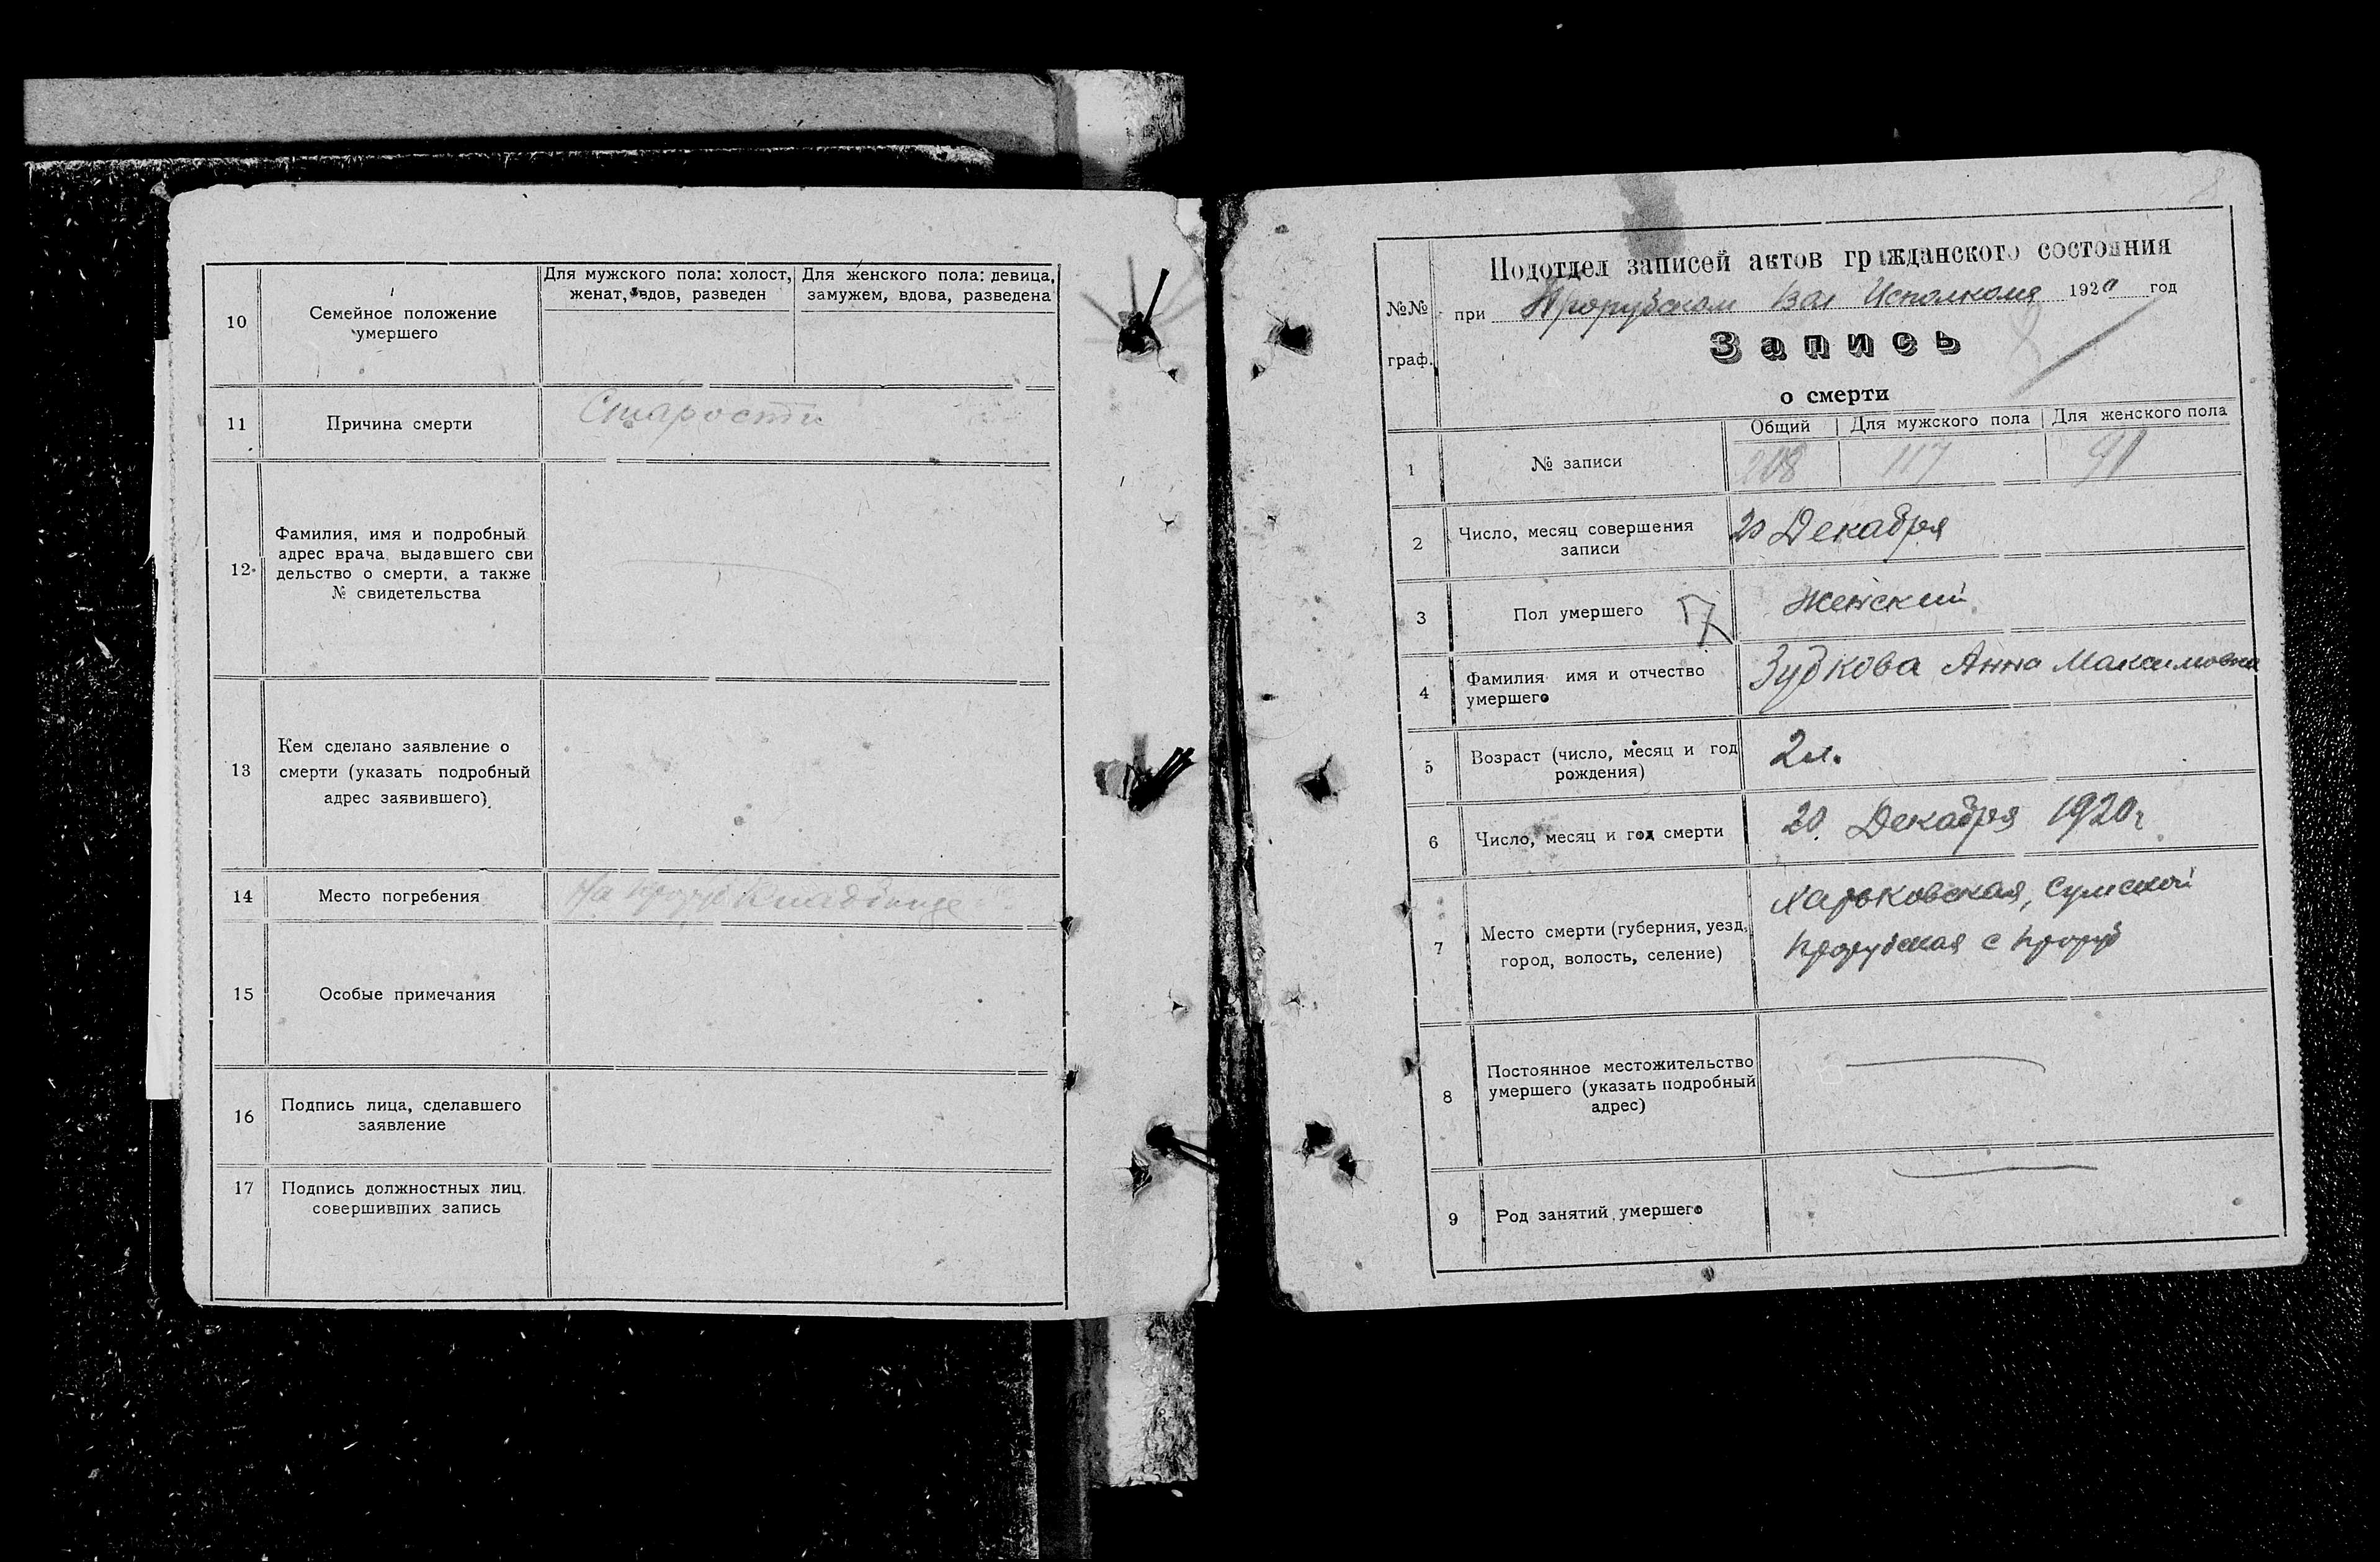 10
Семейное положение
умершего
Для мужского пола: холост,
женат, вдов, разведен
Для женского пола: девица,
замужем, вдова, разведена
11
Причина смерти
Старости
12
Фамилия, имя и подробный
адрес врача, выдавшего сви
дельство о смерти, а также
№ свидетельства
13
Кем сделано заявление о
смерти (указать подробный
адрес заявившего)
14
Место погребения
На Проруб Кладбище
15
Особые примечания
16
Подпись лица, сделавшего
заявление
17
Подпись должностных лиц,
совершивших запись
№№
граф.
Подотдел записей актов гражданского состояния
при Прорубском Вол Исполкоме 1920 год
Запись
о смерти
Общий
Для мужского пола
Для женского пола
1
№ записи
208
117
91
2
Число, месяц совершения
записи
20 Декабря
3
Пол умершего
Женский
4
Фамилия имя и отчество
умершего
Зубкова Анна Максимовна
5
Возраст (число, месяц и год
рождения)
2 л.
6
Число, месяц и год смерти
20 Декабря 1920 г
7
Место смерти (губерния, уезд,
город, волость, селение)
Харьковская, Сумской
Прорубская с Проруб
8
Постоянное местожительство
умершего (указать подробный
адрес)
9
Род занятий умершего